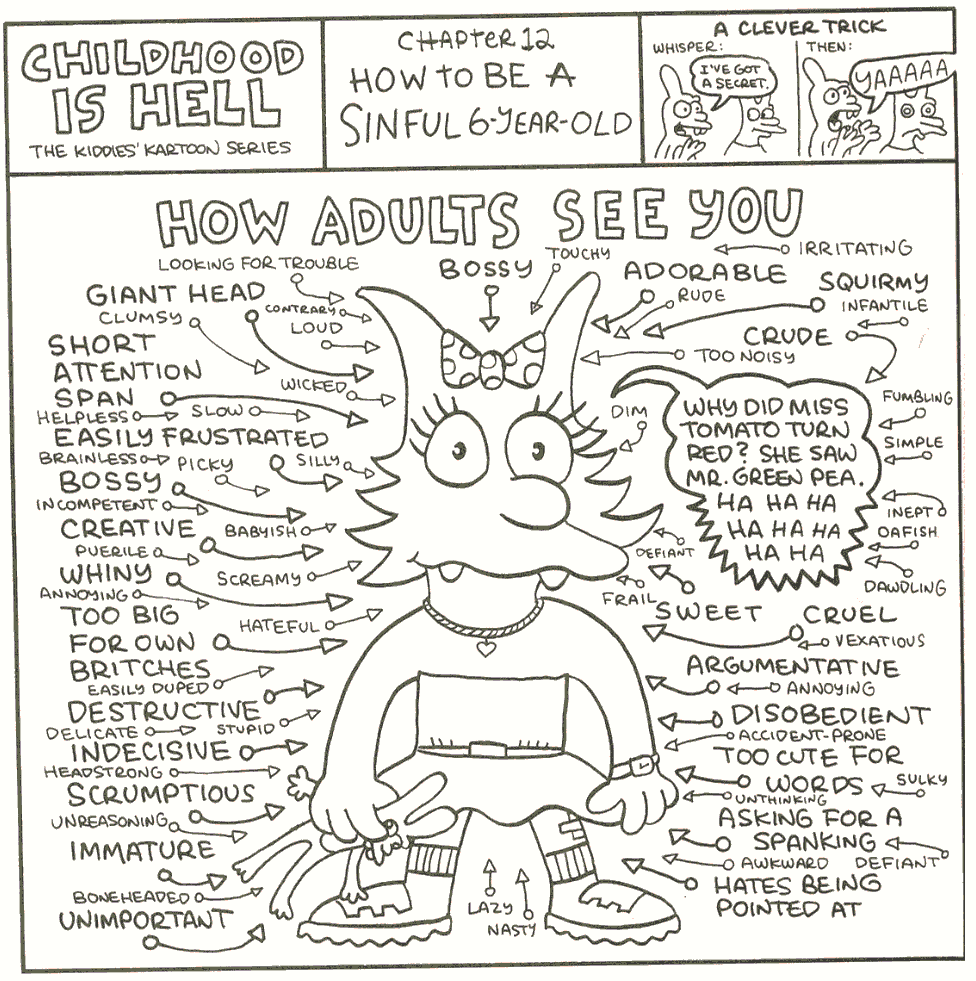 CHILDHOOD
IS HELL
THE KIDDIES' KARTOON SERIES
CHAPTER 12
HOW TO BE A
SINFUL 6-YEAR-OLD
A CLEVER TRICK
WHISPER:
I'VE GOT
A SECRET.
THEN:
YAAAAA
HOW ADULTS SEE YOU
LOOKING FOR TROUBLE
GIANT HEAD
CONTRARY
CLUMSY
LOUD
SHORT
ATTENTION
SPAN
WICKED
HELPLESS
SLOW
EASILY FRUSTRATED
BRAINLESS
PICKY
SILLY
BOSSY
INCOMPETENT
CREATIVE
BABYISH
PUERILE
WHINY
SCREAMY
ANNOYING
TOO BIG
FOR OWN
BRITCHES
HATEFUL
EASILY DUPED
DESTRUCTIVE
DELICATE
STUPID
INDECISIVE
HEADSTRONG
SCRUMPTIOUS
UNREASONING
IMMATURE
BONEHEADED
UNIMPORTANT
BOSSY
TOUCHY
IRRITATING
ADORABLE
RUDE
SQUIRMY
INFANTILE
CRUDE
TOO NOISY
DIM
FUMBLING
SIMPLE
WHY DID MISS
TOMATO TURN
RED? SHE SAW
MR. GREEN PEA.
HA HA HA
HA HA HA
HA HA
INEPT
OAFISH
DEFIANT
DAWDLING
FRAIL
SWEET
CRUEL
VEXATIOUS
ARGUMENTATIVE
ANNOYING
DISOBEDIENT
ACCIDENT-PRONE
TOO CUTE FOR
WORDS
SULKY
UNTHINKING
ASKING FOR A
SPANKING
AWKWARD
DEFIANT
HATES BEING
POINTED AT
LAZY
NASTY